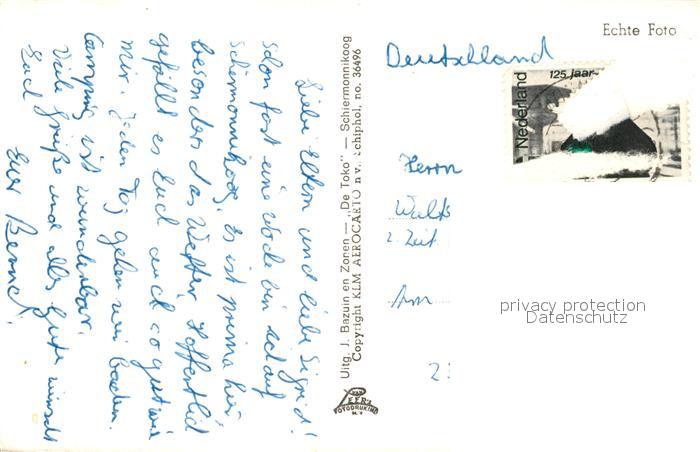 Liebe Eltern und liebe Sigrid!
Schon fast eine Woche bin ich auf
Schiermonnikoog, es ist prima hier,
besonders das Wetter. Hoffentlich
gefällt es Euch auch so gut wie
mir. Jeden Tag gehen wir baden.
Camping ist wunderbar.
Viele Grüße und alles Gute wünscht
Euch
Euer Bernd.
Uitg. J. Bazuin en Zonen — „De Toko" — Schiermonnikoog
Copyright KLM AEROCARTO n.v. Schiphol, no. 36496
VAN LEER'S
FOTODRUKIND
N.V.
Echte Foto
Deutschland
Nederland
125 jaar
Herrn
z. Zeit
Am
privacy protection
Datenschutz